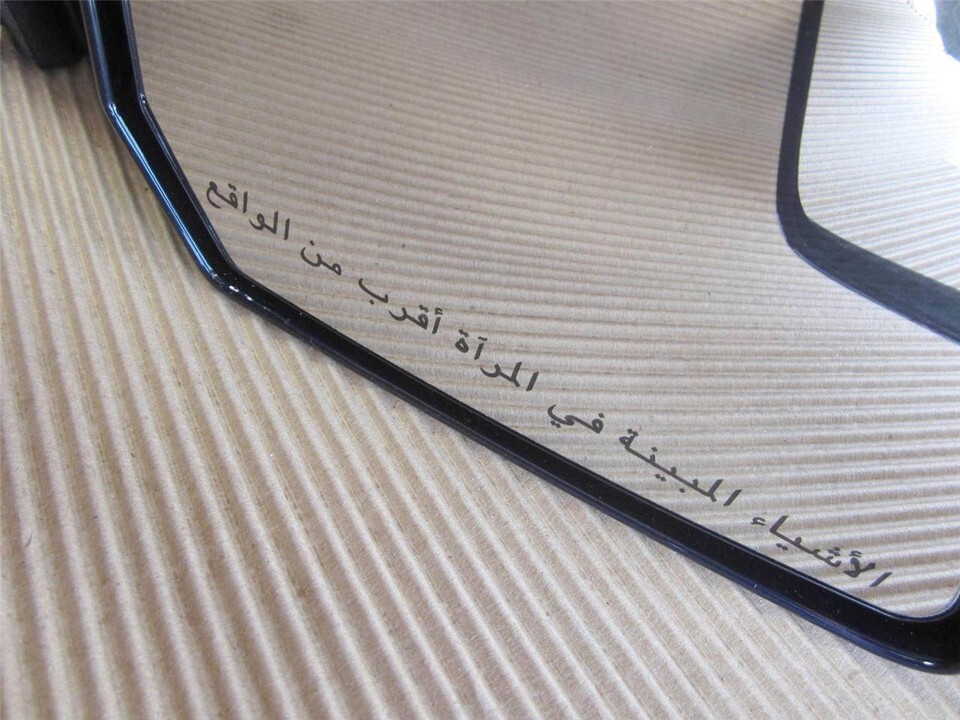 الأشياء المبينة في المرآة أقرب من الواقع